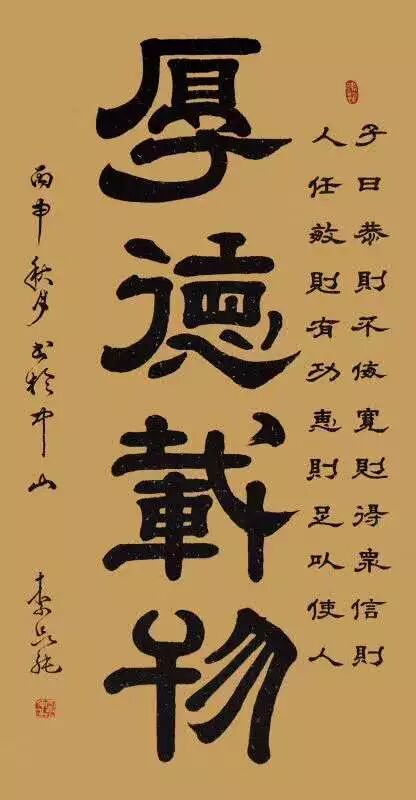 子曰恭則不侮寬則得衆信則
人任敏則有功惠則足以使人
厚德載物
丙申秋月書於中山
李